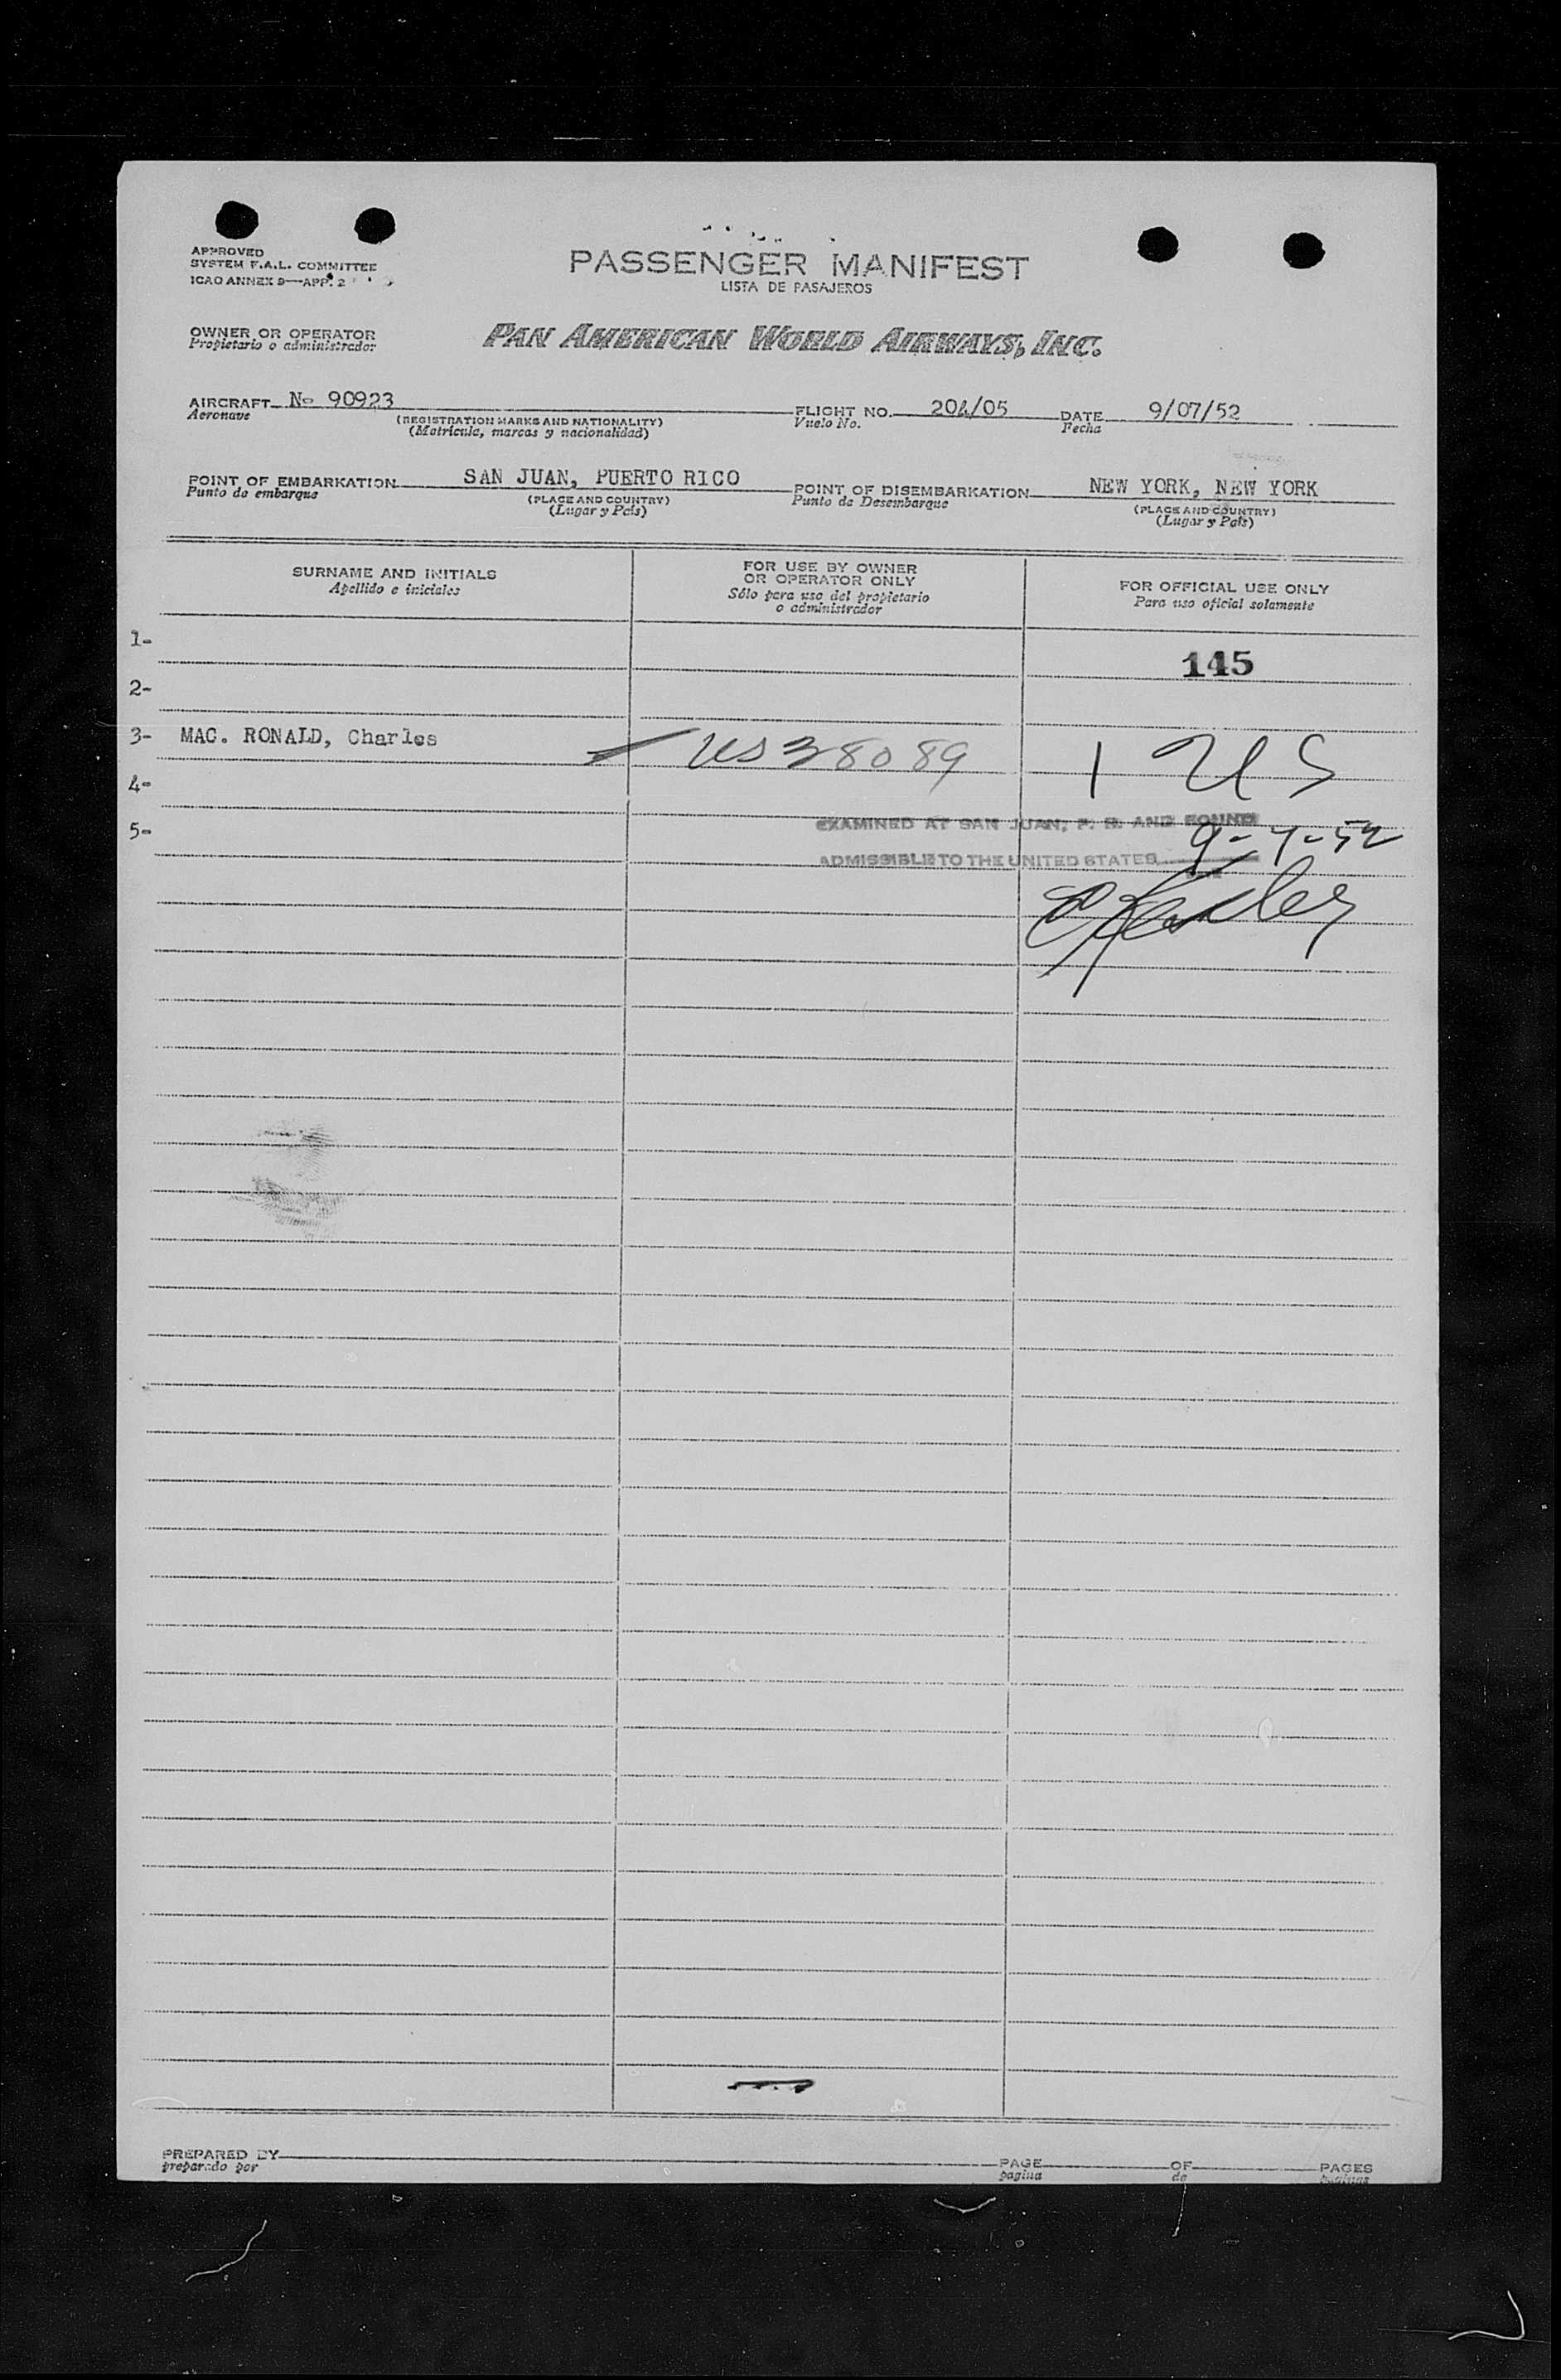 APPROVED
SYSTEM F.A.L. COMMITTEE
ICAO ANNEX 9—APP. 2
PASSENGER MANIFEST
LISTA DE PASAJEROS
OWNER OR OPERATOR
Propietario o administrador
PAN AMERICAN WORLD AIRWAYS, INC.
AIRCRAFT No 90923
Aeronave
(REGISTRATION MARKS AND NATIONALITY)
(Matrícula, marcas y nacionalidad)
FLIGHT NO. 204/05
Vuelo No.
DATE 9/07/52
Fecha
POINT OF EMBARKATION SAN JUAN, PUERTO RICO
Punto de embarque
(PLACE AND COUNTRY)
(Lugar y País)
POINT OF DISEMBARKATION NEW YORK, NEW YORK
Punto de Desembarque
(PLACE AND COUNTRY)
(Lugar y País)
SURNAME AND INITIALS
Apellido e iniciales
FOR USE BY OWNER
OR OPERATOR ONLY
Sólo para uso del propietario
o administrador
FOR OFFICIAL USE ONLY
Para uso oficial solamente
1-
145
2-
3- MAC. RONALD, Charles US 38089 1 US
4-
EXAMINED AT SAN JUAN, P. R. AND FOUND
5-
9-7-52
ADMISSIBLE TO THE UNITED STATES
PREPARED BY
preparado por
PAGE OF PAGES
pagina de paginas